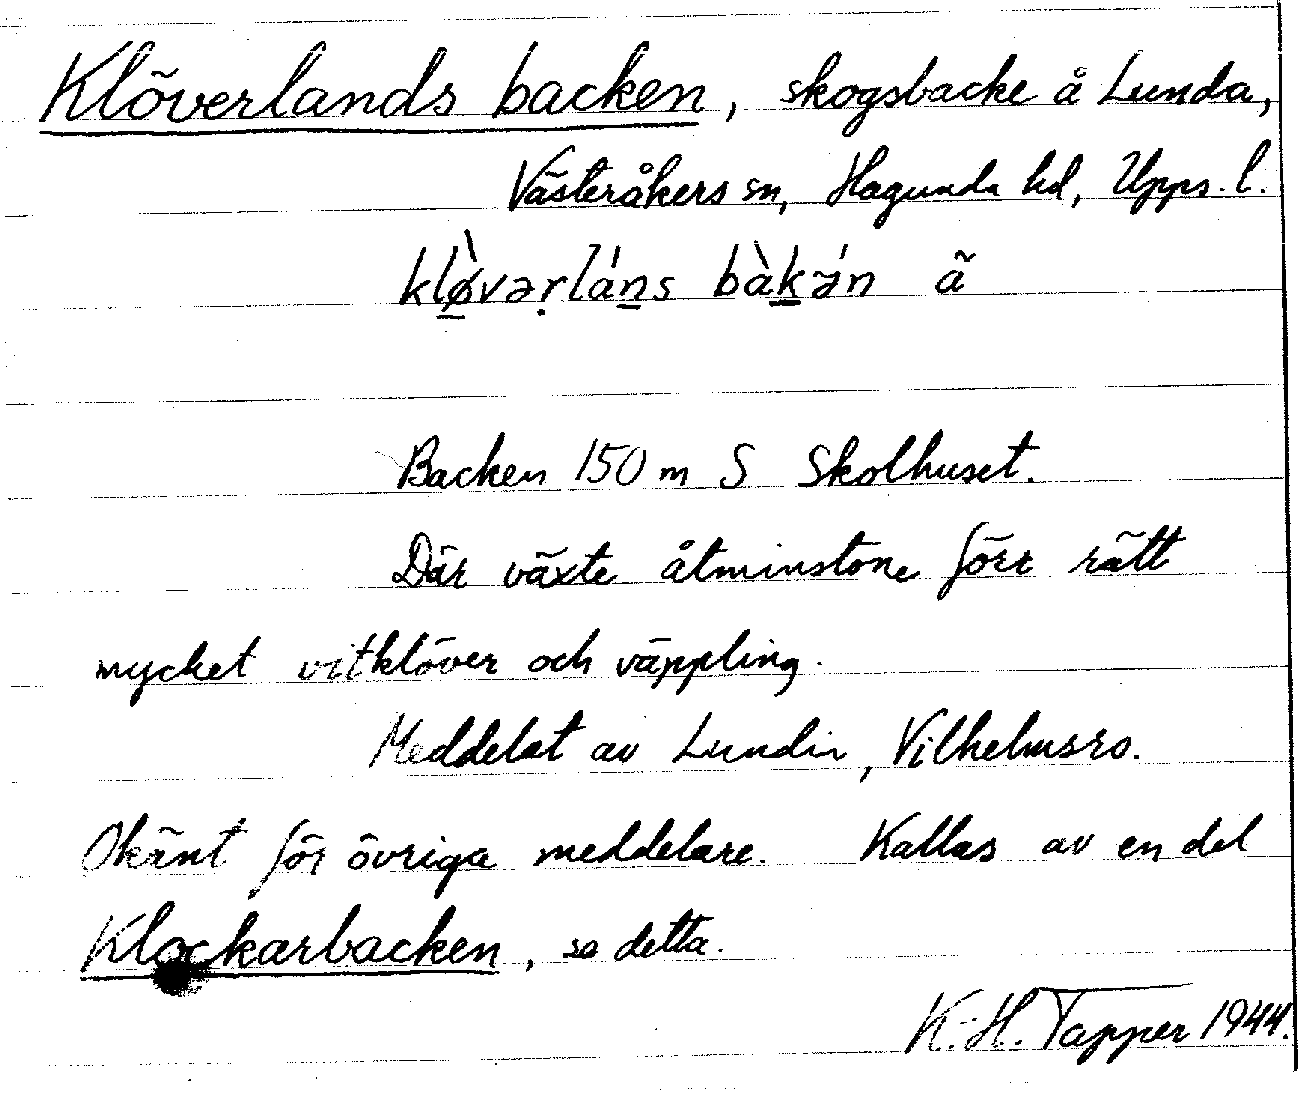 Klöverlands backen, skogsbacke å Lunda,
Västeråkers sn, Hagunda hd, Upps. l.
klø̀vərláns bàkə́n ã
Backen 150 m S Skolhuset.
Där växte åtminstone förr rätt
mycket vitklöver och väppling.
Meddelat av Lundin, Vilhelmsro.
Okänt för övriga meddelare. Kallas av en del
Klockarbacken, se detta.
K.-H. Tapper 1944.